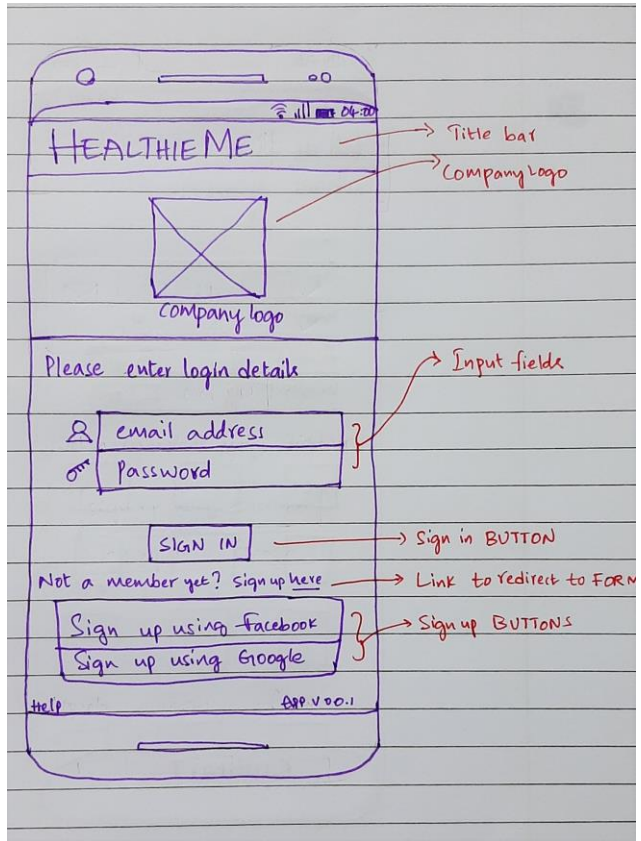 04:00
HEALTHIEME
Title bar
Company Logo
Company logo
Please enter login details
Input fields
email address
Password
SIGN IN
Sign in BUTTON
Not a member yet? Sign up here
Link to redirect to FORM
Sign up using Facebook
Sign up BUTTONS
Sign up using Google
Help
APP V 0.0.1